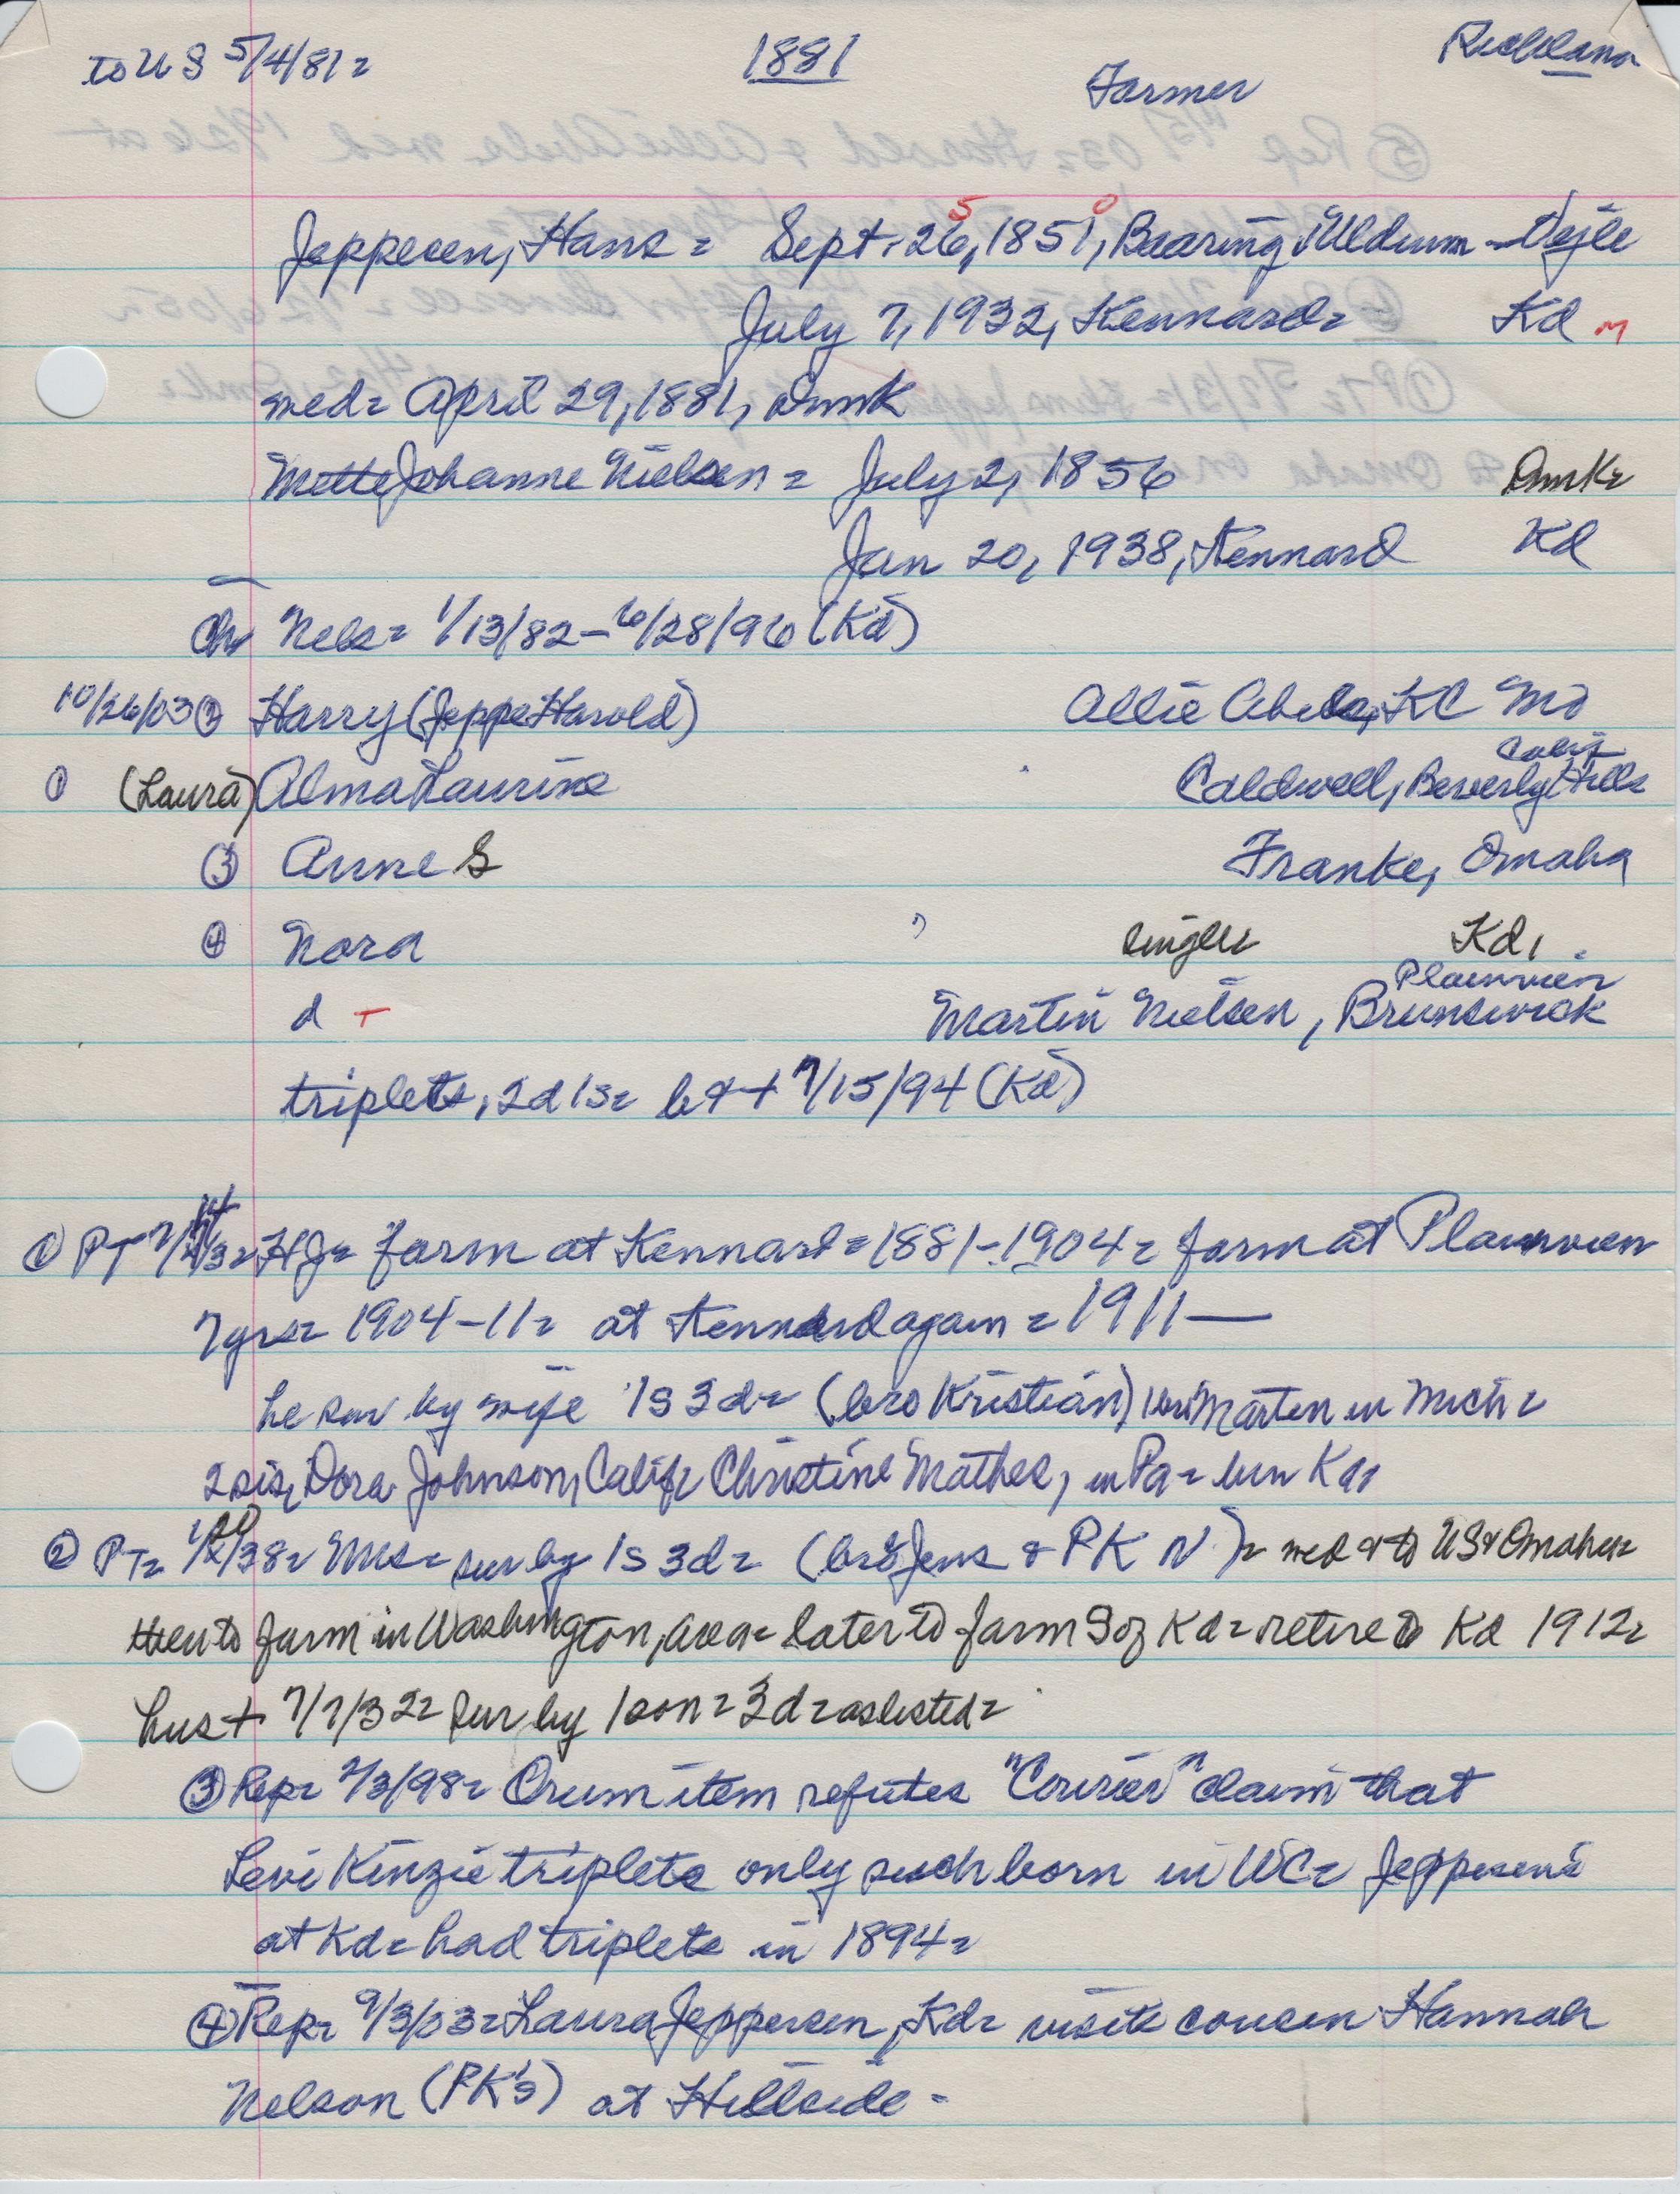 to US 5/4/81=
1881
Farmer
Richland
Jeppesen, Hans = Sept. 26, 1851, Baaring, Uldum - Vejle
5 0
July 7, 1932, Kennard= Kd m
med= April 29, 1881, Dnmk
Mette Johanne Nielsen = July 2, 1856 Dnmk=
Jan 20, 1938, Kennard Kd
Ch Nels= 1/13/82-6/28/96 (Kd)
10/26/03 ② Harry (Jeppe Harold) Allie Abele, KC Mo
Calif
① (Laura) Alma Laurine Caldwell, Beverly Hills
③ Anne S Franke, Omaha
④ Nora " single= Kd,
Plainview
d - Martin Nielsen, Brunswick
triplets, 2d 1s= b & + 7/15/94 (Kd)
① PT 7/14/32= HJ= farm at Kennard= 1881-1904= farm at Plainview
7yrs= 1904-11= at Kennard again = 1911—
he sur by wife 1s 3d= (bro Kristian) 1 bro Marten in Mich=
2 sis, Dora Johnson, Calif= Christine Mathes, in Pa= bur Kd,
② PT= 1/20/38= Mrs= sur by 1s 3d= (bro Jens & PK N)= med & to US & Omaha=
then to farm in Washington, area= later to farm S of Kd= retire to Kd 1912=
hus + 7/7/32= sur by 1 son= 3d= as listed=
③ Rep= 2/3/98= Orum item refutes "Courier" claim that
Levi Kinzie triplets only such born in WC= Jeppesens
at Kd= had triplets in 1894=
④ Rep= 9/3/03= Laura Jeppesen, Kd= visits cousin Hannah
Nelson (PK's) at Hillside-